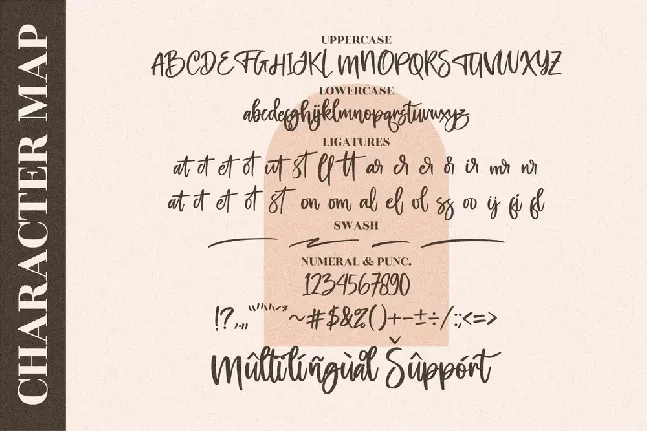 CHARACTER MAP
UPPERCASE
ABCDEFGHIJKLMNOPQRSTUVWXYZ
LOWERCASE
abcdefghijklmnopqrstuvwxyz
LIGATURES
at ct et ot ut st ff tt ar cr er or ir mr nr
at it et ot st on om al el ol ss oo ij fi fl
SWASH
NUMERAL & PUNC.
1234567890
~#$&%()+-±÷/:;<=>
Mûltílíñgùål Šûppórt